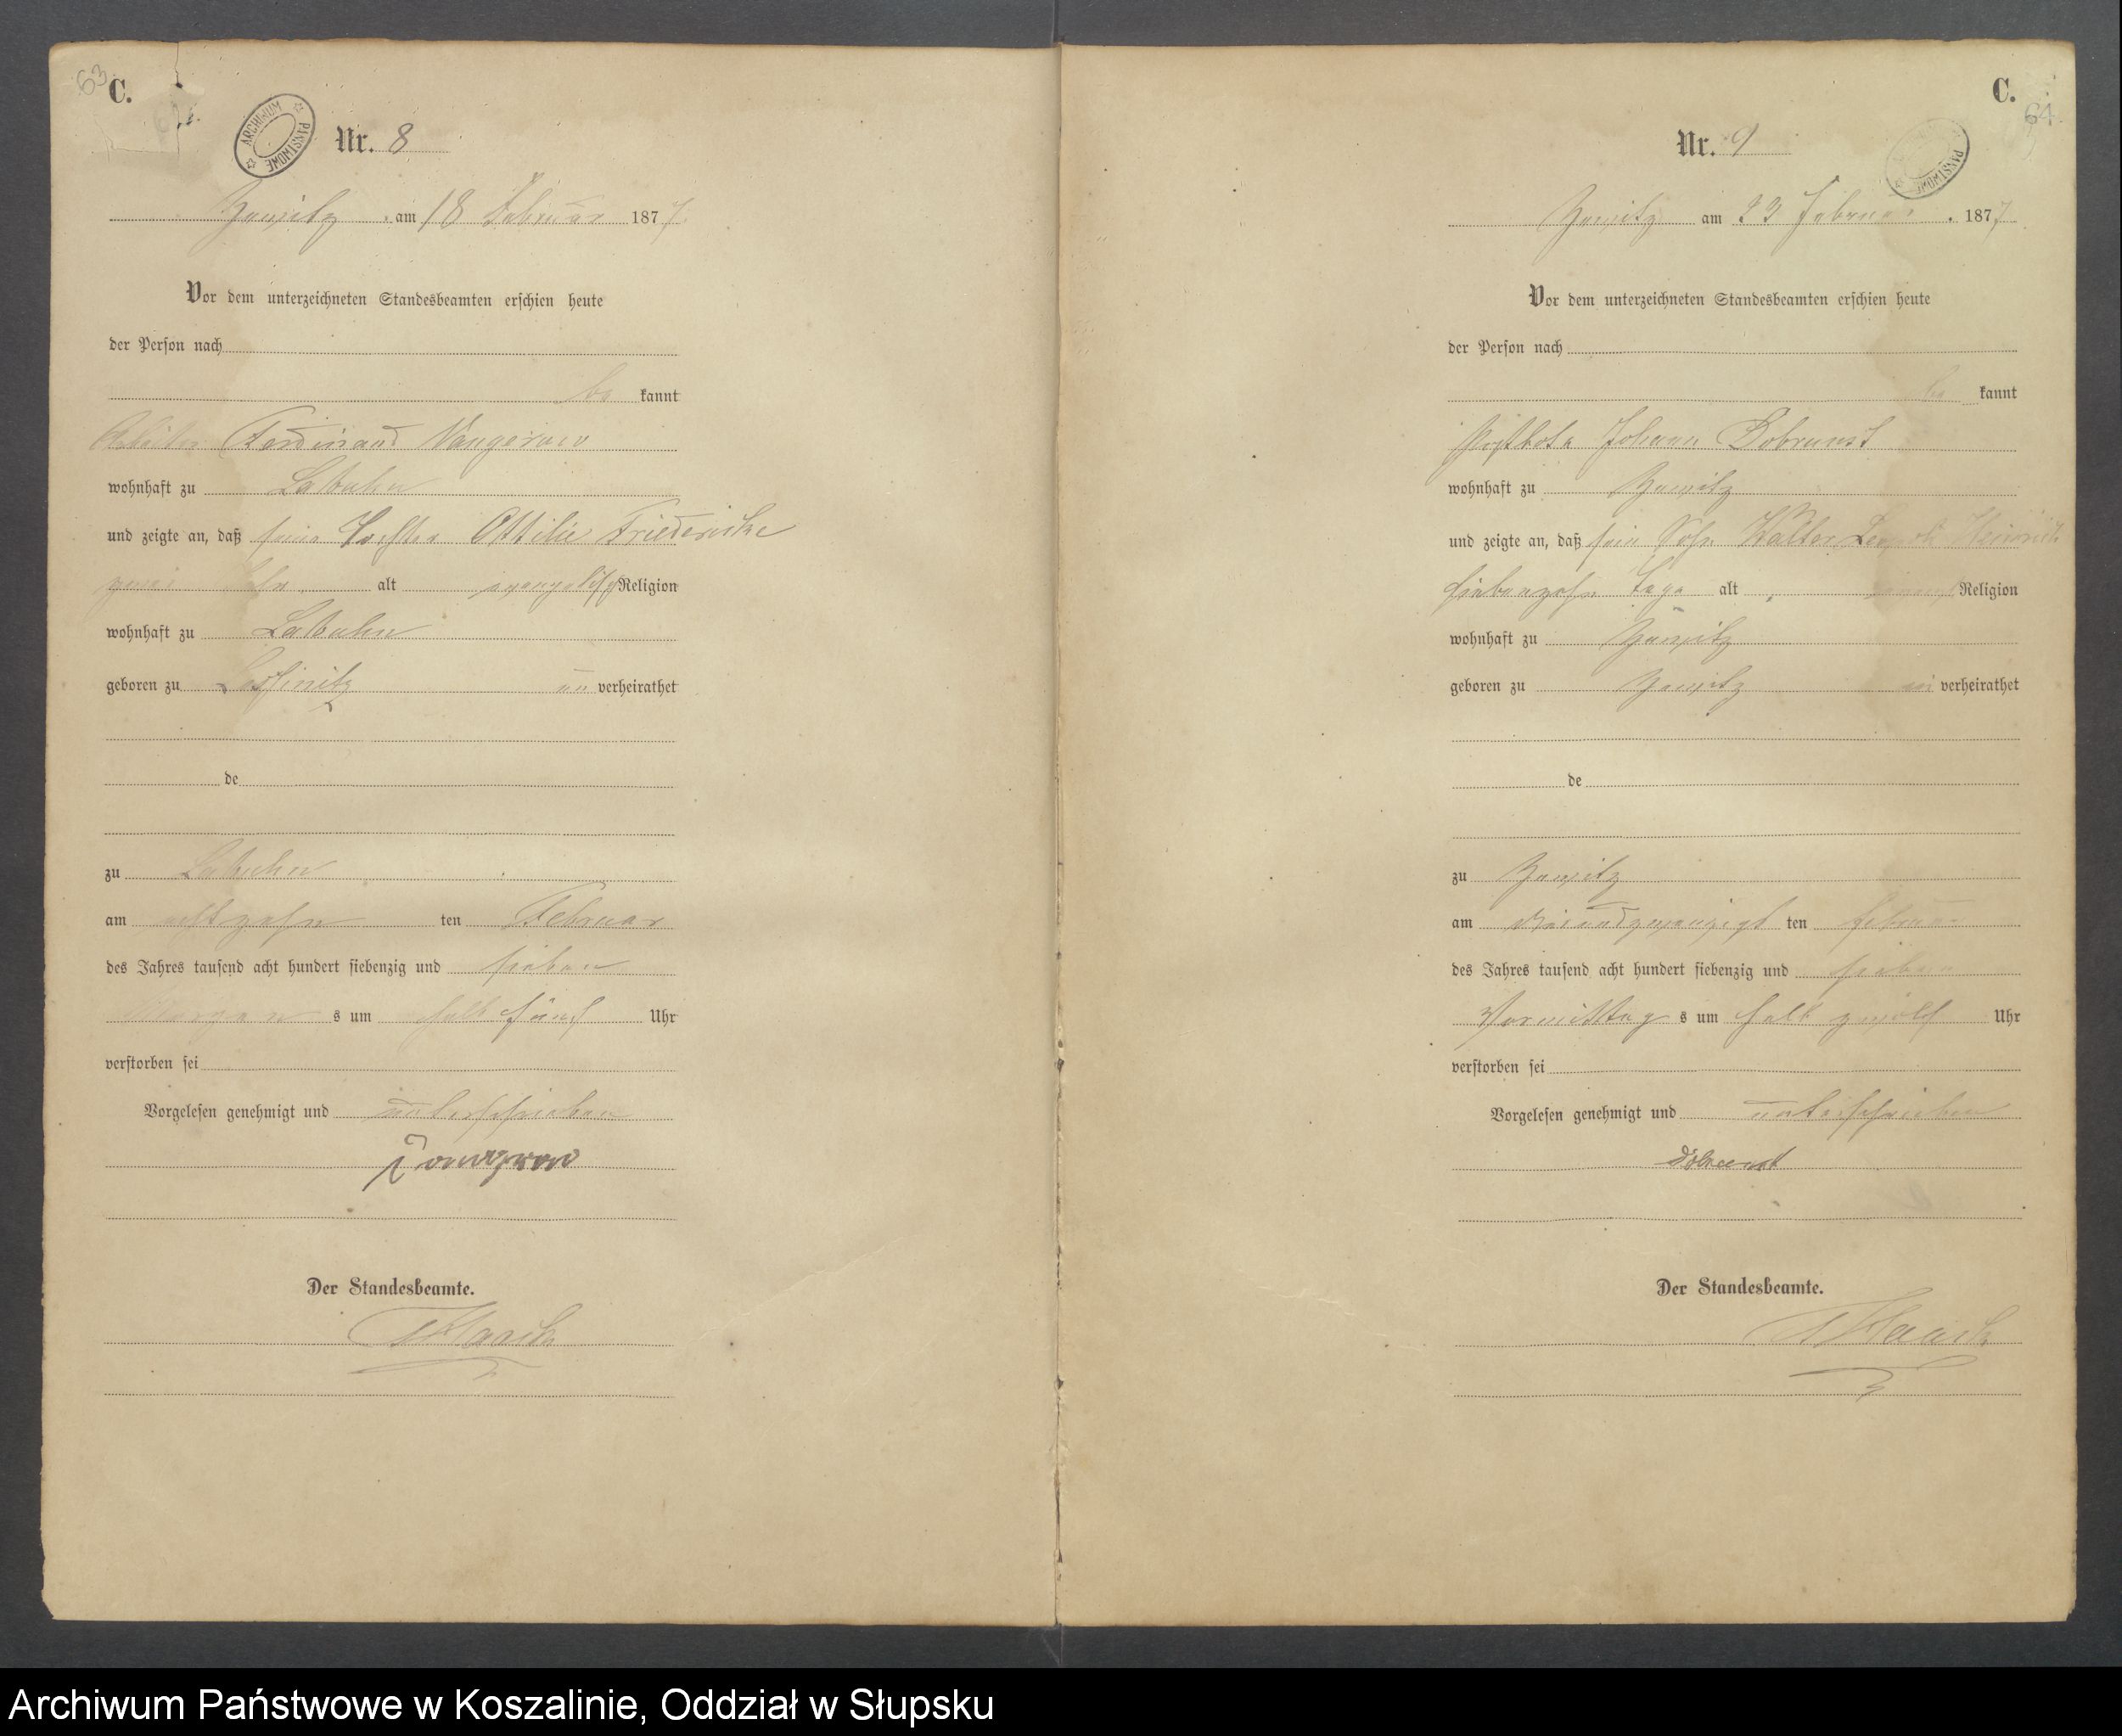 63
C.
ARCHIWUM PAŃSTWOWE
Nr. 8
Zewitz am 18 Februar 1877.
Vor dem unterzeichneten Standesbeamten erschien heute
der Person nach
be kannt
Ferdinand Vangerow
wohnhaft zu Labuhn
und zeigte an, daß seine Tochter Ottilie Friedericke
alt evangelisch Religion
wohnhaft zu Labuhn
geboren zu un verheirathet
de
zu Labuhn
am achtzehn ten Februar
des Jahres tausend acht hundert siebenzig und sieben
Morgen s um halb fünf Uhr
verstorben sei
Vorgelesen genehmigt und unterschrieben
Vangerow
Der Standesbeamte.
Haack
C.
64.
PAŃSTWOWE
Nr. 9
Zewitz am 22 Februar. 1877
Vor dem unterzeichneten Standesbeamten erschien heute
der Person nach
be kannt
Postbote Johann Dobrunst
wohnhaft zu Zewitz
und zeigte an, daß sein Sohn Walter Leopold Heinrich
siebenzehn Tage alt, Religion
wohnhaft zu Zewitz
geboren zu Zewitz un verheirathet
de
zu Zewitz
am ten Februar
des Jahres tausend acht hundert siebenzig und sieben
Vormittag s um halb zwölf Uhr
verstorben sei
Vorgelesen genehmigt und unterschrieben
Dobrunst
Der Standesbeamte.
Haack
Archiwum Państwowe w Koszalinie, Oddział w Słupsku